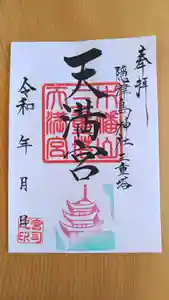 奉拝
隠津島神社三重塔
天満宮
令和 年 月 日
天満宮
宮司之印